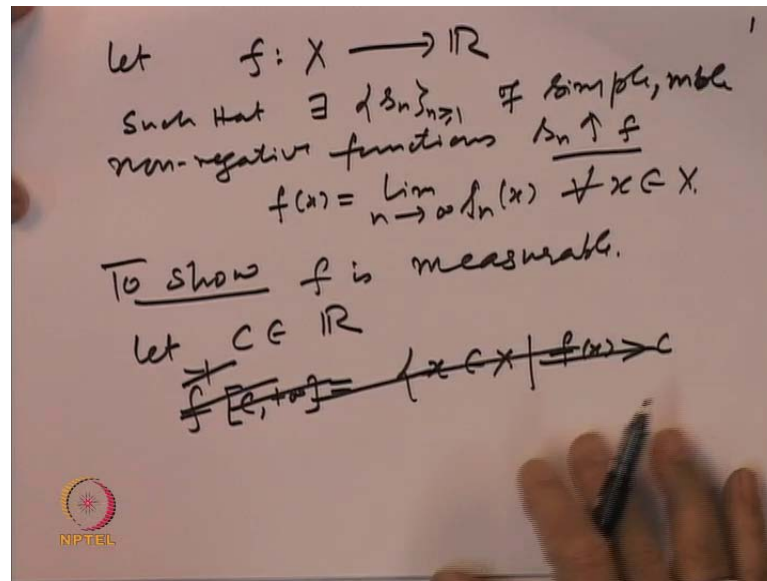 1
Let f : X ⟶ ℝ
Such that ∃ {sₙ}ₙ≥₁ of simple, mble
non-negative functions sₙ ↑ f
f(x) = Lim n→∞ sₙ(x) ∀ x ∈ X.
To show f is measurable.
Let C ∈ ℝ
f⁻¹[C, +∞] = { x ∈ X | f(x) > C
NPTEL